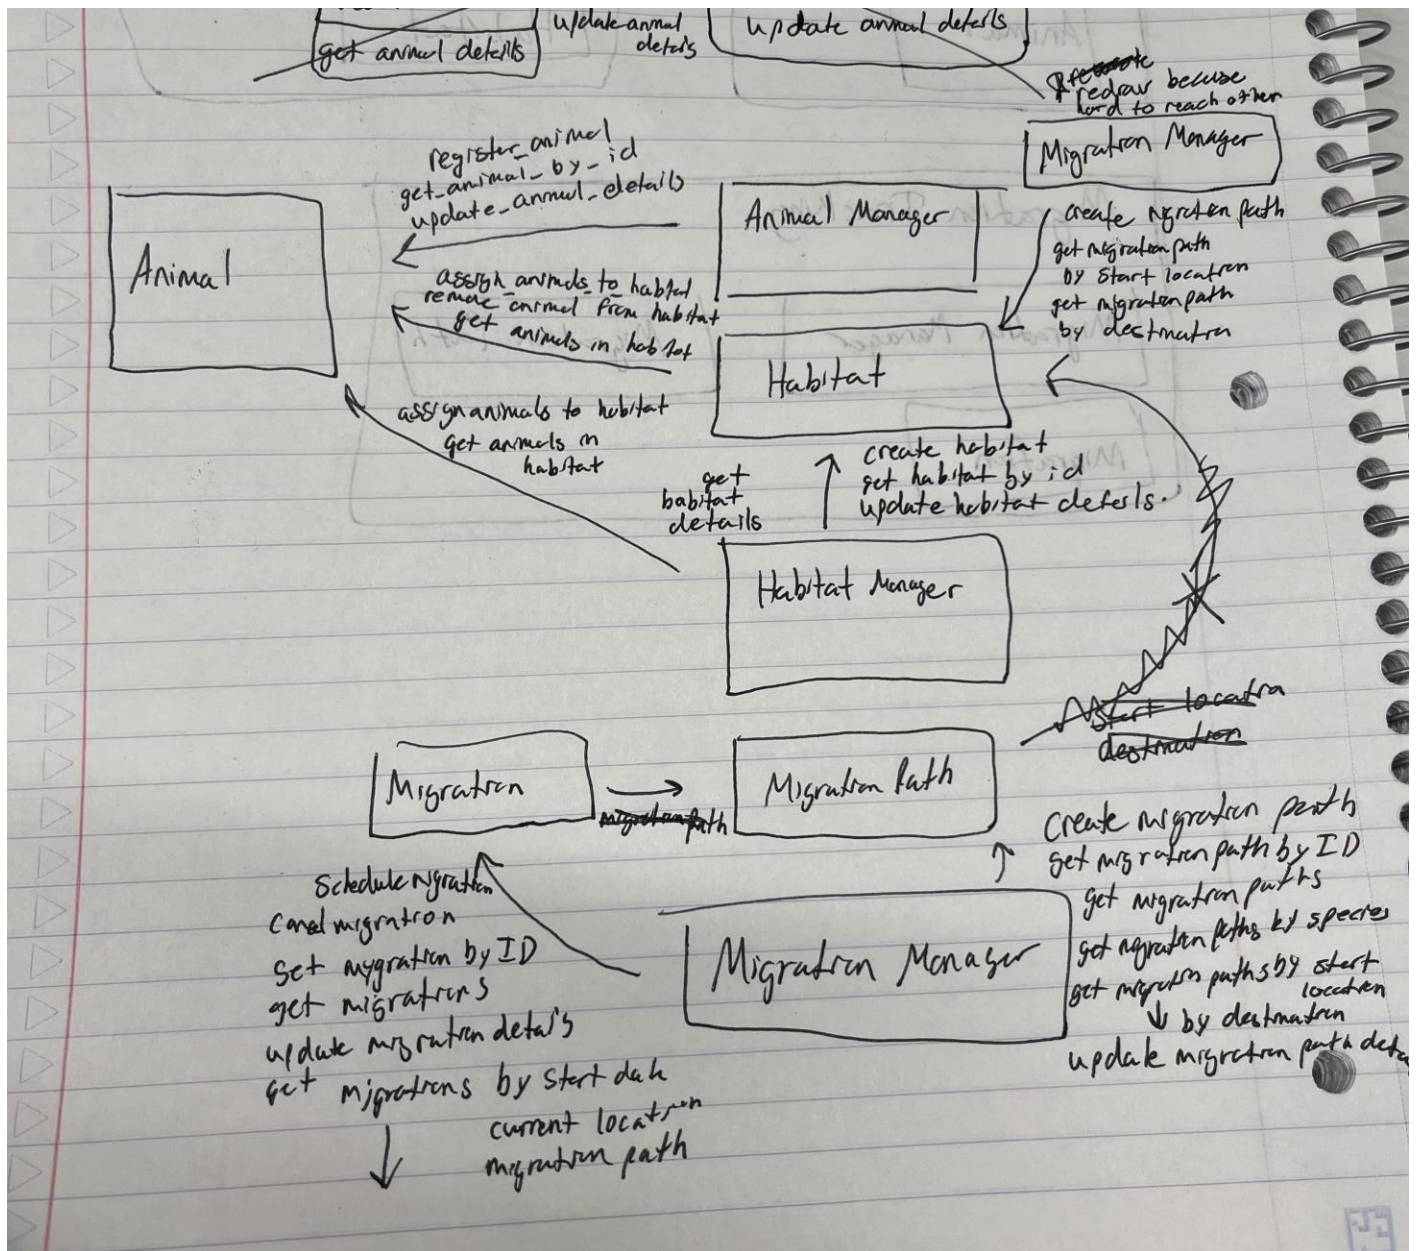 get animal details
update animal
details
update animal details
redraw because
hard to reach other
Migration Manager
register_animal
get_animal_by_id
update_animal_details
Animal Manager
create migration path
get migration path
by start location
get migration path
by destination
Animal
assign_animals_to_habitat
remove_animal from habitat
get animals in habitat
Habitat
assign animals to habitat
get animals in
habitat
get
habitat
details
create habitat
get habitat by id
update habitat details.
Habitat Manager
start location
destination
Migration
migration path
Migration Path
Create migration path
get migration path by ID
get migration paths
get migration paths by species
get migration paths by start
location
by destination
update migration path
Schedule migration
Cancel migration
get migration by ID
get migrations
update migration details
get migrations by start date
current location
migration path
Migration Manager